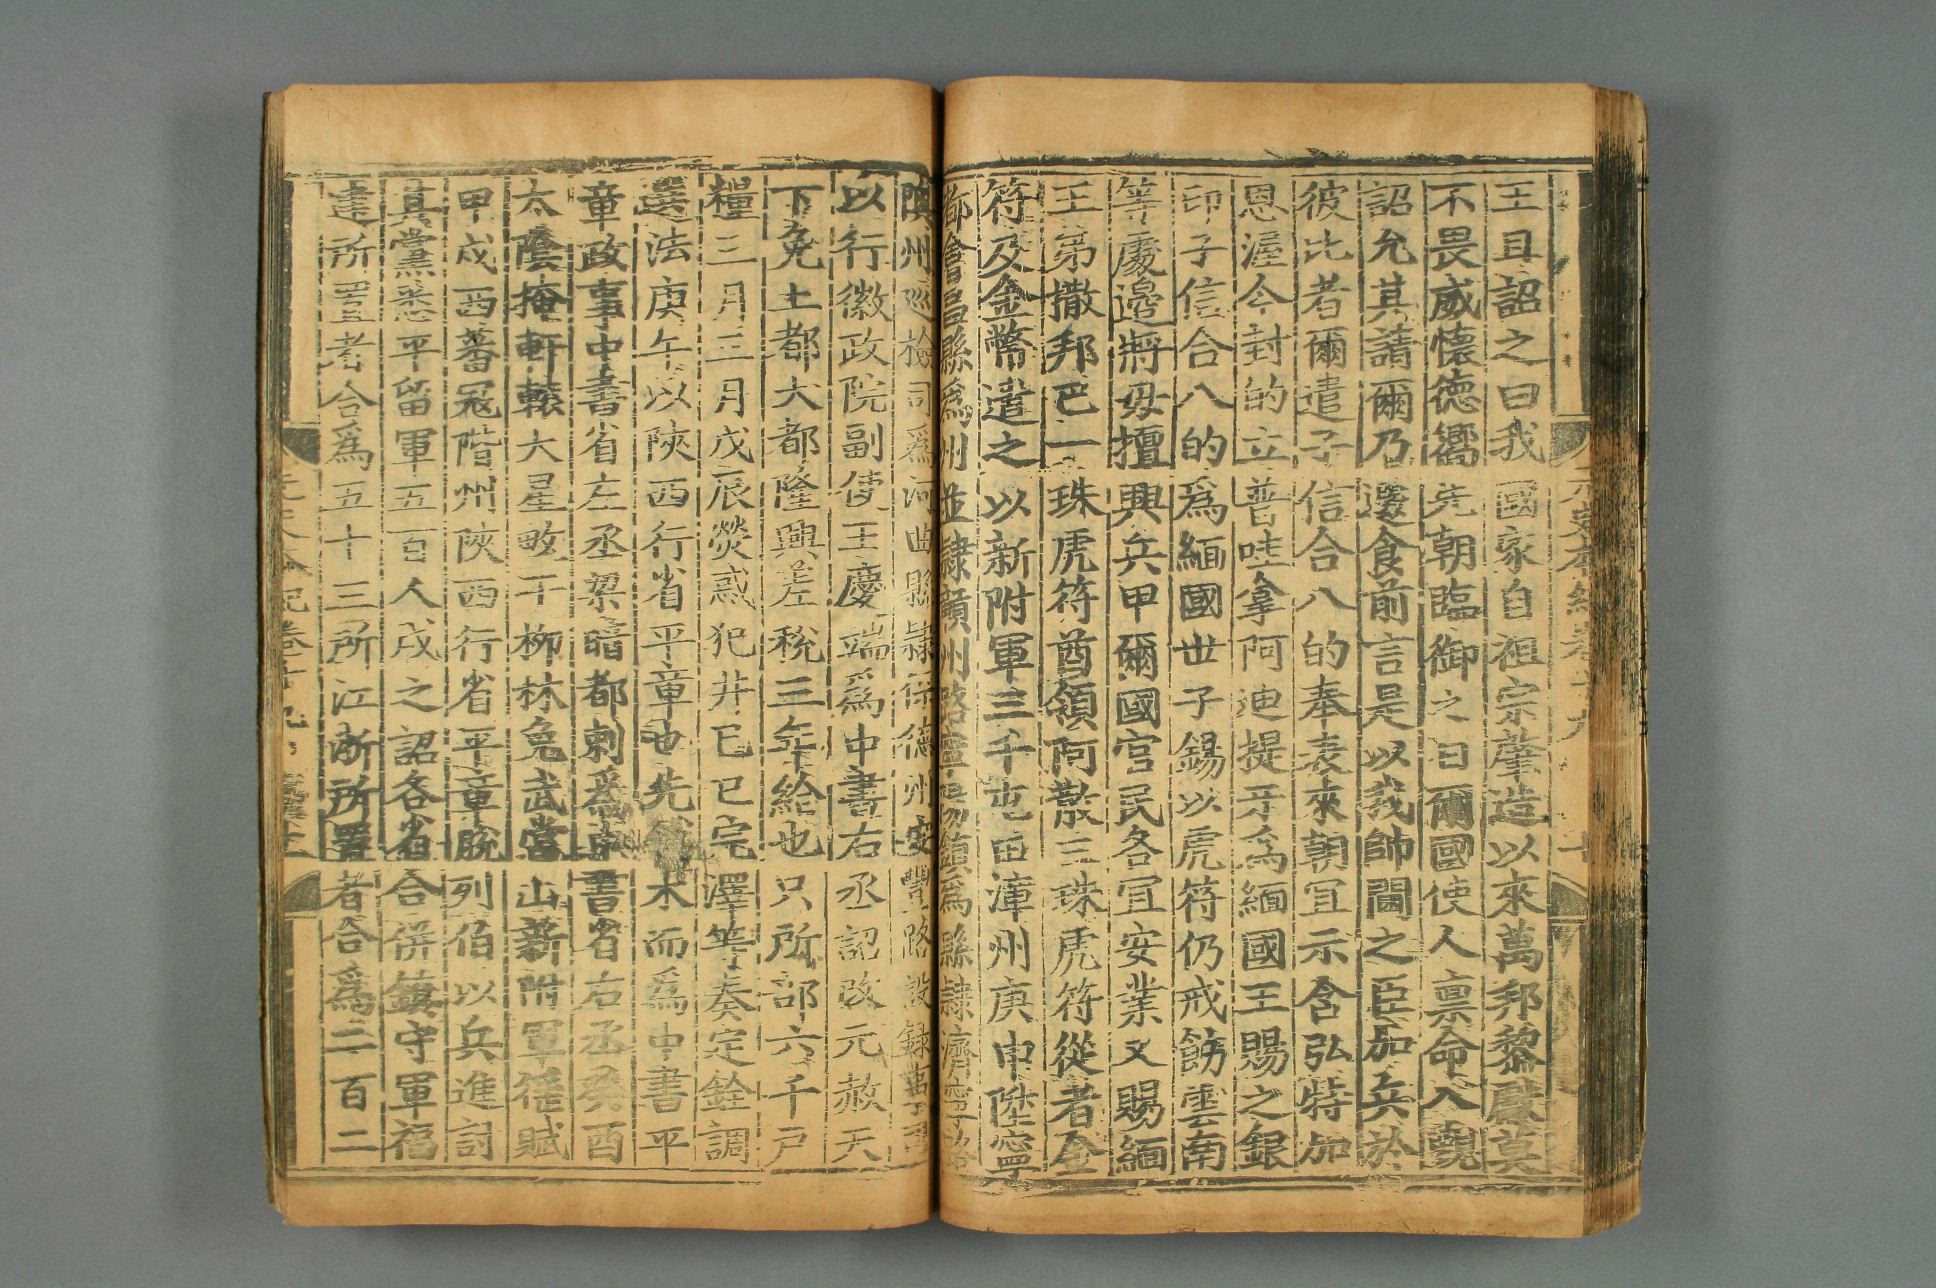 王且詔之曰我國家自祖宗肇造以來萬邦黎獻莫
不畏威懷德嚮先朝臨御之日爾國使人稟命入覲
詔允其請爾乃遽食前言是以我帥閫之臣加兵於
彼比者爾遣子信合八的奉表來朝宜示含弘特加
恩渥今封的立普哇拿阿迪提牙為緬國王賜之銀
印子信合八的為緬國世子錫以虎符仍戒飭雲南
等處邊將毋擅興兵甲爾國官民各宜安業又賜緬
王弟撒邦巴一珠虎符酋領阿散三珠虎符從者金
符及金幣遣之以新附軍三千屯田漳州庚申陞寧
都會昌縣為州並隸贛州路寧 鎮為縣隸濟寧路
州巡檢司為河曲縣隸保德州安豐路設録事司
以行徽政院副使王慶端為中書右丞詔改元赦天
下免上都大都隆興差稅三年給也只所部六千戶
糧三月三月戊辰熒惑犯井己巳完澤等奏定銓調
選法庚午以陝西行省平章也先 木而為中書平
章政事中書省左丞梁暗都剌為中書省右丞癸酉
太陰掩軒轅大星畋于柳林免武當山新附軍徭賦
甲戌西蕃寇階州陝西行省平章脫列伯以兵進討
其黨悉平留軍五百人戍之詔各省合併鎮守軍福
建所置者合為五十三所江浙所置者合為二百二
元史本紀卷十九
元史本紀卷十九